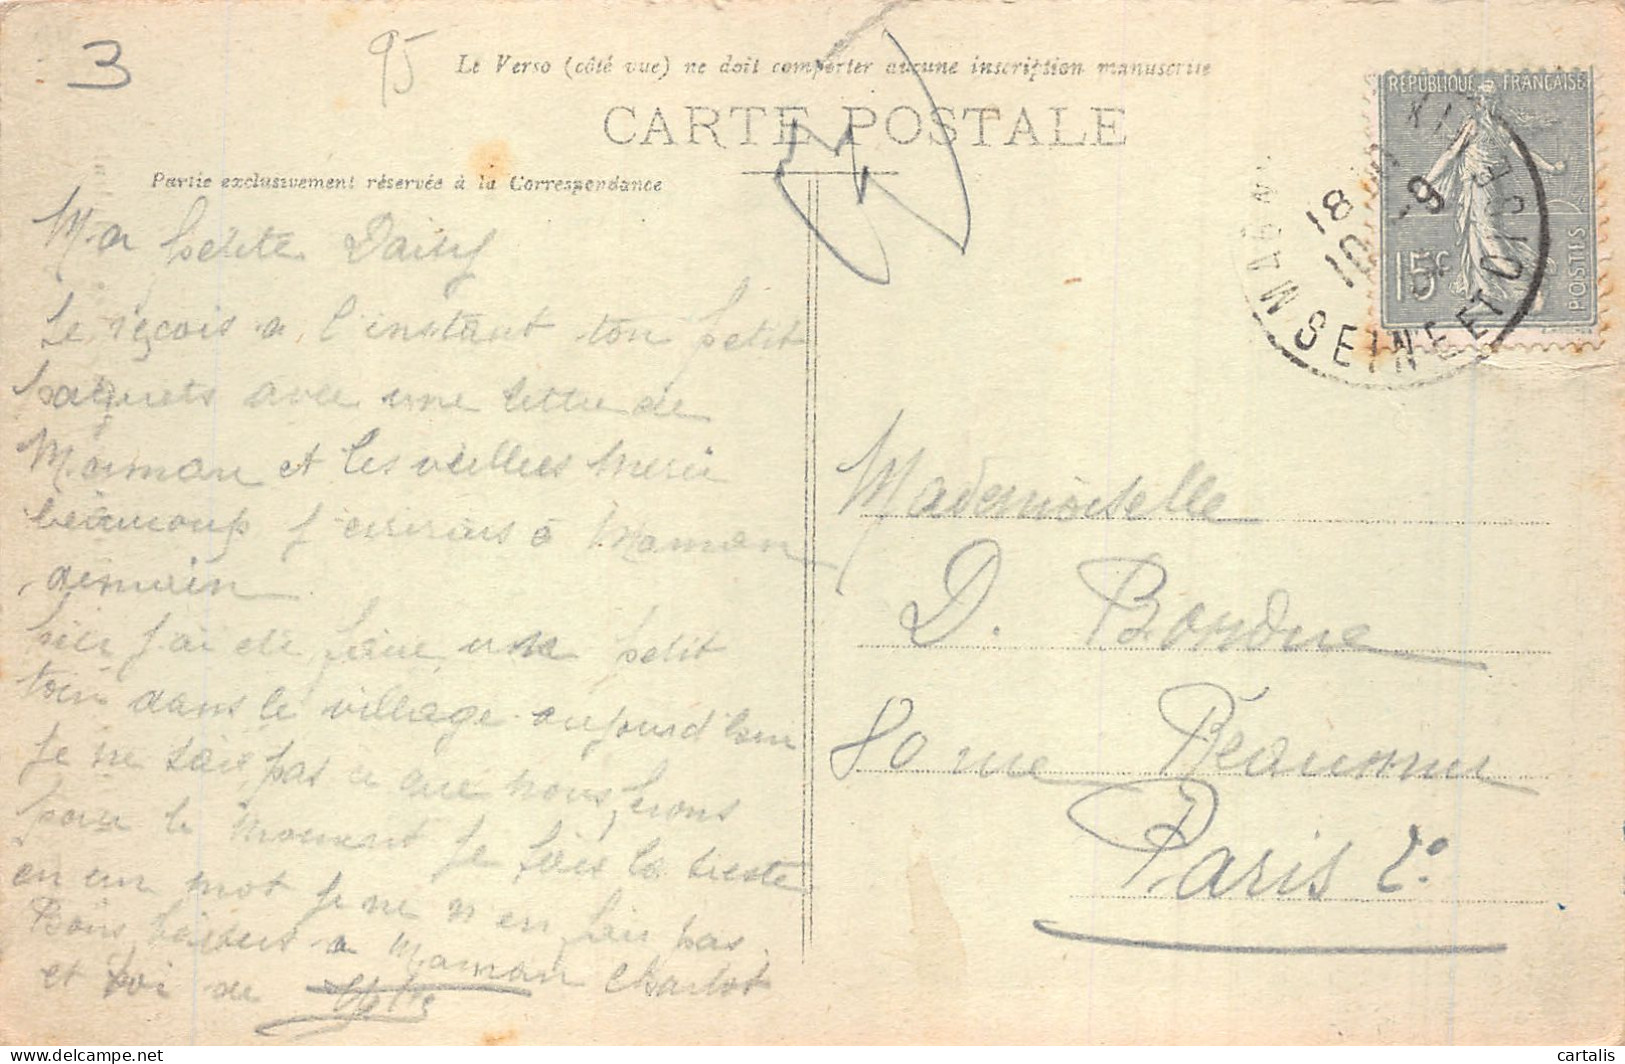 3
95
Le Verso (côté vue) ne doit comporter aucune inscription manuscrite
CARTE POSTALE
Partie exclusivement réservée à la Correspondance
REPUBLIQUE FRANÇAISE
15c
POSTES
18
10 -9
SEINE ET OISE
Ma petite Daisy
Je reçois a l'instant ton petit
paquets avec une lettre de
Maman et les vieilles merci
beaucoup j'ecrirais à Maman
demain
hier j'ai été faire une petit
tour dans le village aujourd'hui
je ne sais pas ce que nous ferons
pour le moment je fais la sieste
en un mot je ne m'en fais pas
Bons baisers a Maman Charlot
et toi de
Mademoiselle
D. Bordue
80 rue Réaumur
Paris 2e
cartalis